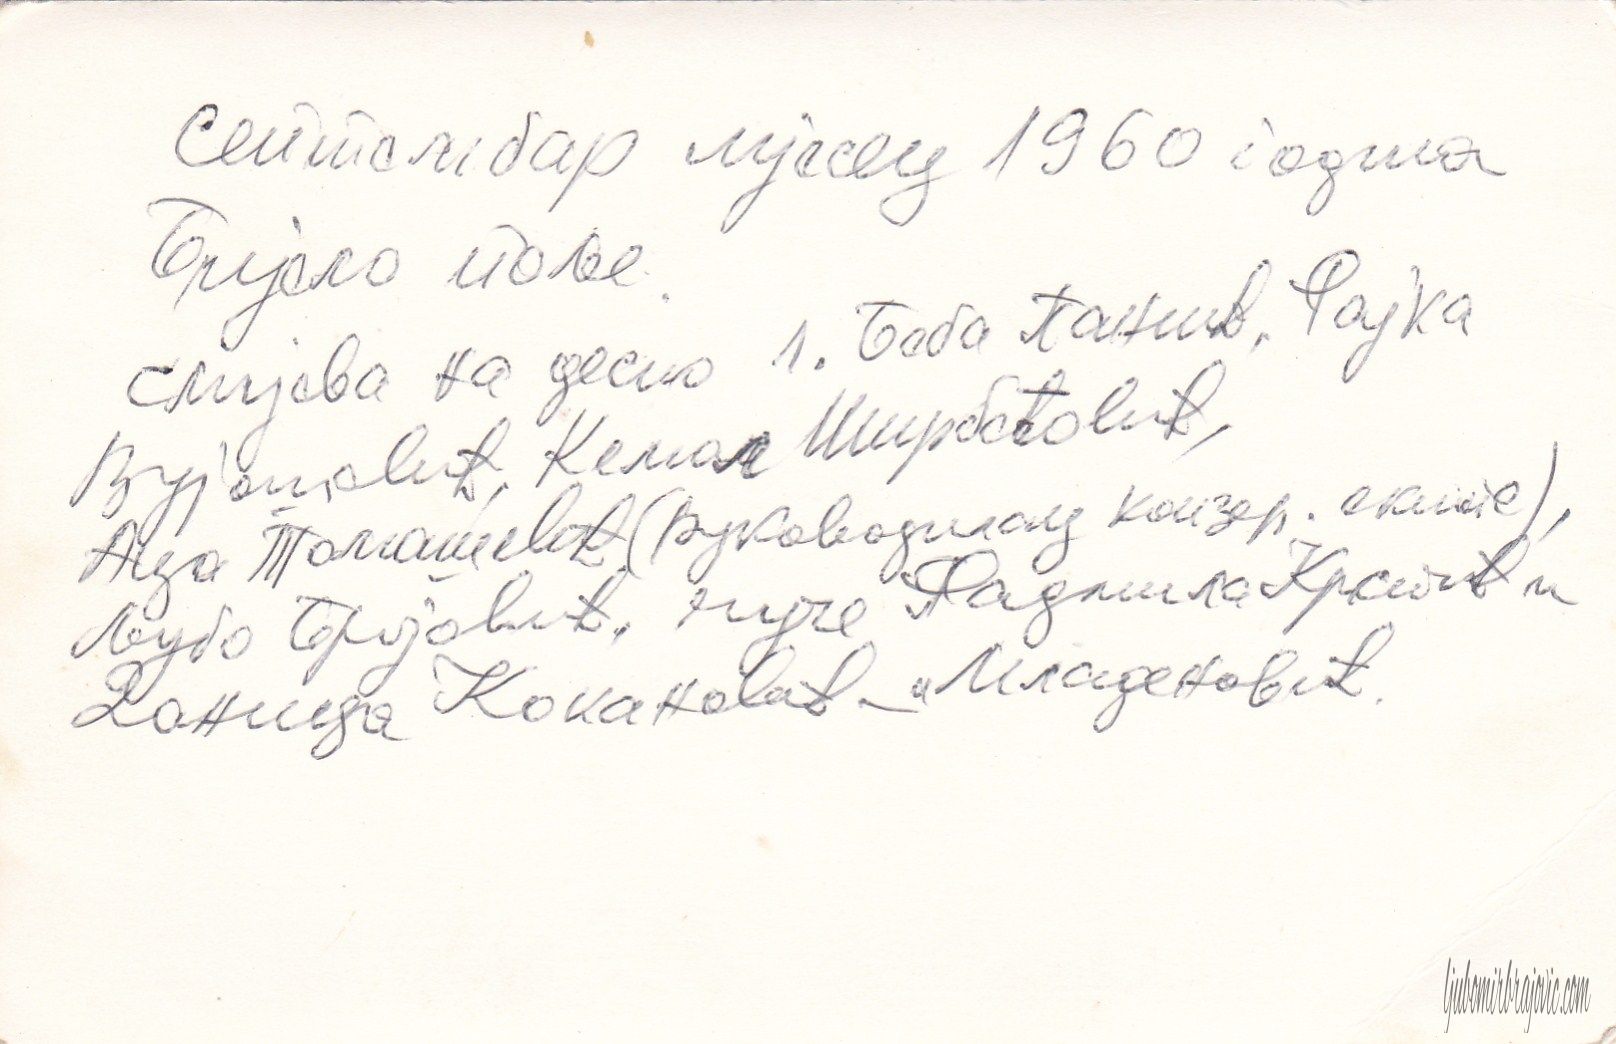 Септембар мјесец 1960 година
Бијело поље.
смијева на десно 1. Беба Панић, Рајка
Вујошевић, Кемал Ширбеговић,
Аца Томашевић, (Руководилац конзер. екипе),
Љубо Брајовић, чуче Радмила Крстић и
Даница Кокановић - Младеновић.
ljubomirbrajovic.com